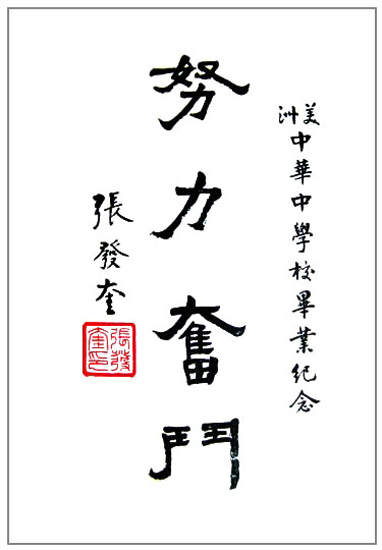 美洲中華中學校畢業紀念
努力奮鬥
張發奎
張發奎印